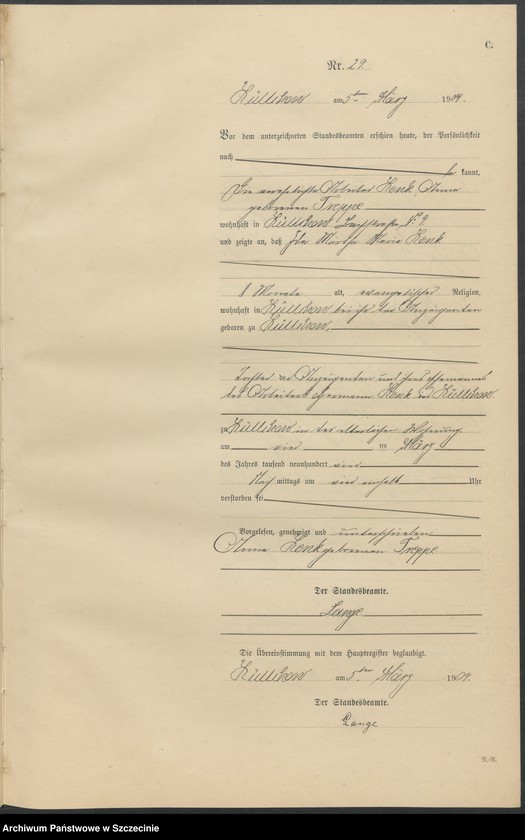 C.
Nr. 29
Züllchow am 5ten März 1904.
Vor dem unterzeichneten Standesbeamten erschien heute, der Persönlichkeit
nach
kannt,
die verehelichte Arbeiter Henk, Anna
geborenen Treppe
wohnhaft in Züllchow 9.
und zeigte an, daß Ida Martha Maria Henk
8 Monate alt, evangelischer Religion,
wohnhaft in Züllchow bei ihr der Anzeigenden
geboren zu Züllchow,
Tochter der Anzeigenden und ihres Ehemannes
des Arbeiters Hermann Henk Züllchow.
zu Züllchow in der elterlichen Wohnung
am vier ten März
des Jahres tausend neunhundert vier
Nach mittags um vier einhalb Uhr
verstorben sei
Vorgelesen, genehmigt und unterschrieben
Anna Henk geborenen Treppe
Der Standesbeamte.
Lange
Die Übereinstimmung mit dem Hauptregister beglaubigt.
Züllchow am 5ten März 1904.
Der Standesbeamte.
Lange
Archiwum Państwowe w Szczecinie